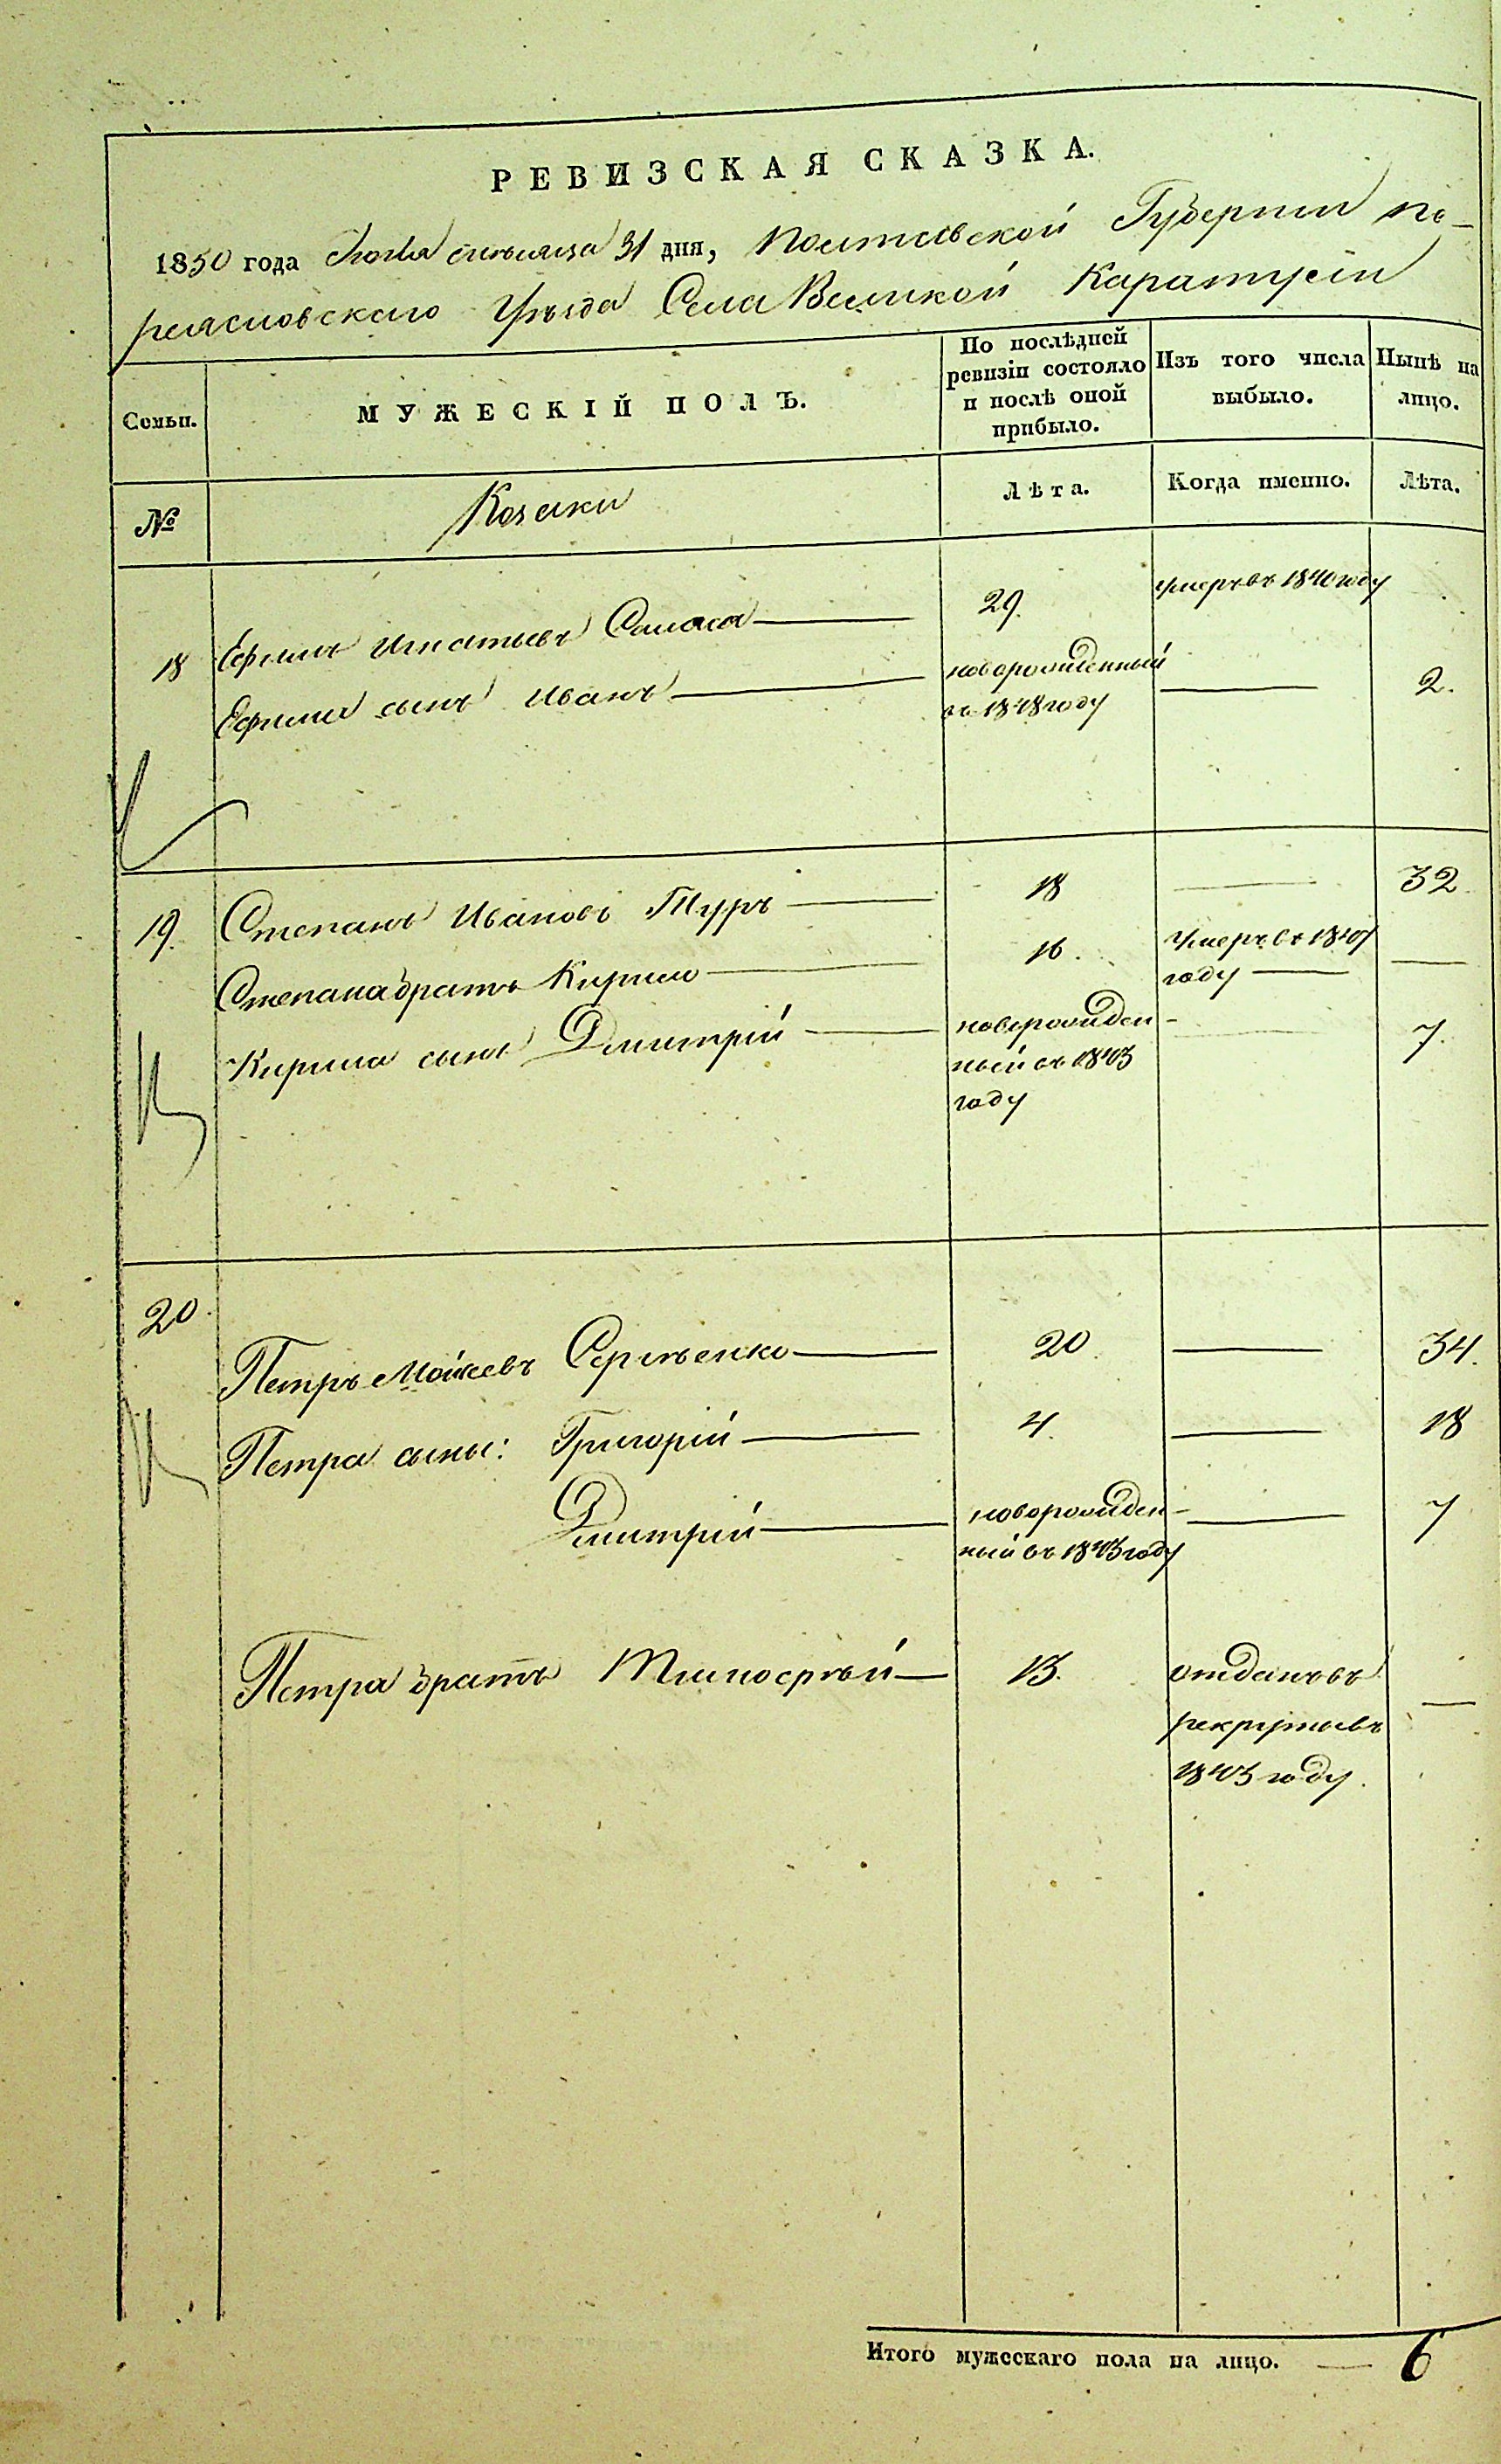 РЕВИЗСКАЯ СКАЗКА.
1850 года месяца 31 дня, Полтавской Губернии Пе-
реяславского Уѣзда Села Великой Каратули
Семьи.
МУЖЕСКІЙ ПОЛЪ.
По послѣдней
ревизіи состояло
и послѣ оной
прибыло.
Изъ того числа
выбыло.
Нынѣ на
лицо.
№
Козаки
Лѣта.
Когда именно.
Лѣта.
18 Ефимъ Игнатьевъ 29. умеръ въ 1840 году
Ефима сынъ Иванъ новорожденный 2.
въ 1848 году
19. Степанъ Ивановъ Туръ 18 32
Степана братъ Кирило 16. Умеръ въ 1847
году
Кирила сынъ Дмитрій новорожден- 7.
ный въ 1843
году
20.
Петръ Мойсеевъ Сергѣенко 20. 34.
Петра сыны: Григорій 4. 18
Дмитрій новорожден- 7
ный въ 1843 году
Петра братъ Тимофѣй 13. отданъ въ
рекруты въ
1843 году.
Итого мужескаго пола на лицо. 6